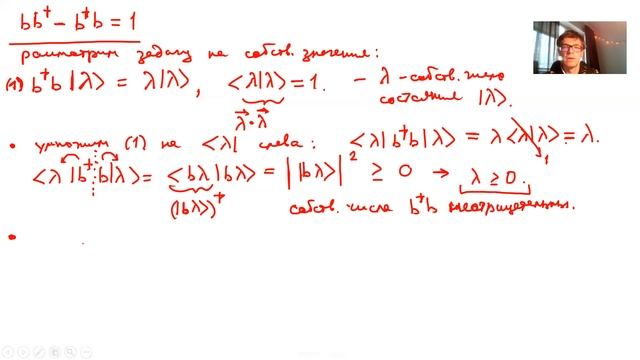 bb⁺ − b⁺b = 1
рассмотрим задачу на собств. значения:
(1) b⁺b |λ⟩ = λ|λ⟩, ⟨λ|λ⟩ = 1. – λ – собств. число
λ⃗·λ⃗ состояния |λ⟩.
• умножим (1) на ⟨λ| слева: ⟨λ| b⁺b |λ⟩ = λ⟨λ|λ⟩ = λ.
1
⟨λ|b⁺ b|λ⟩ = ⟨bλ|bλ⟩ = ||bλ⟩|² ≥ 0 → λ ≥ 0.
(|bλ⟩)⁺ собств. числа b⁺b неотрицательны.
•